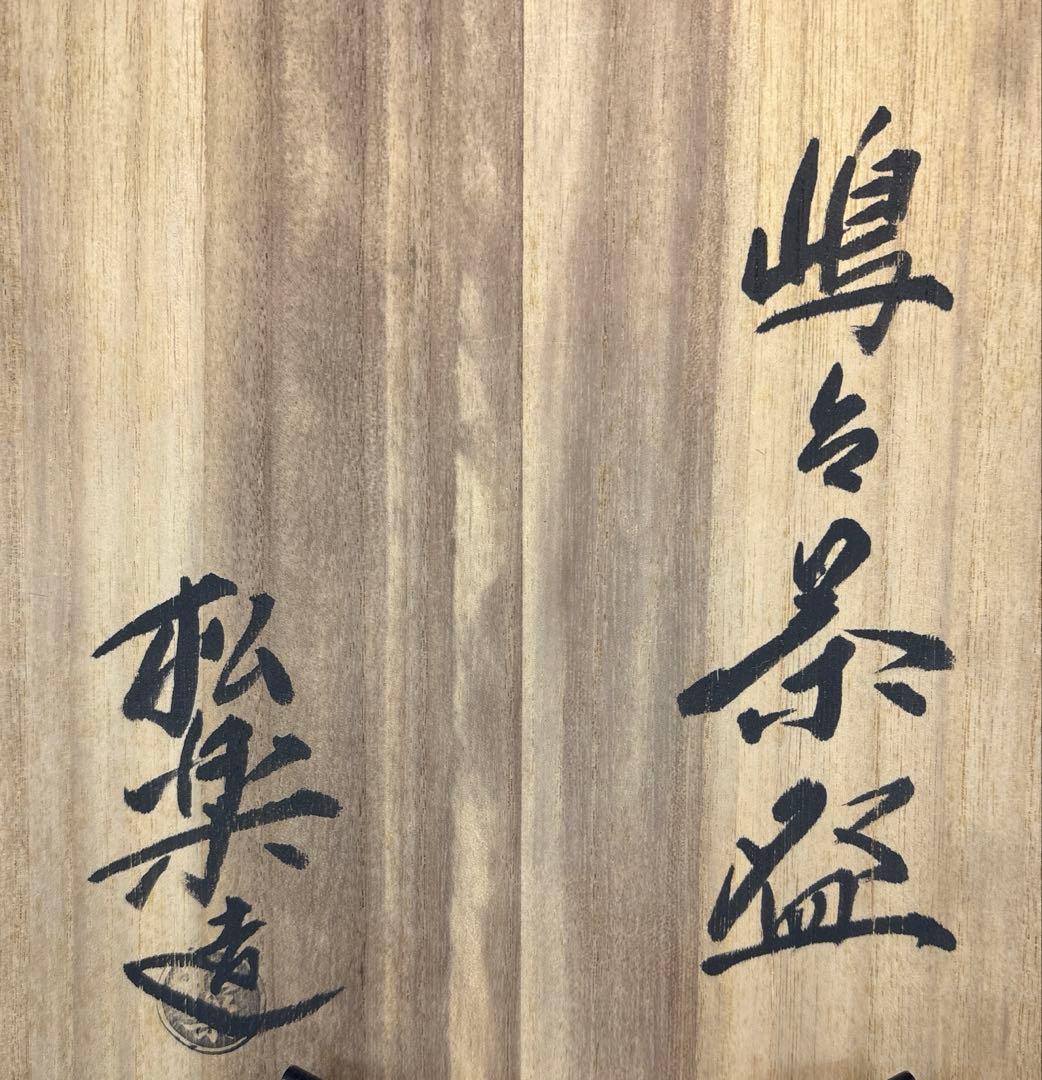 嶋台茶盌
松楽造